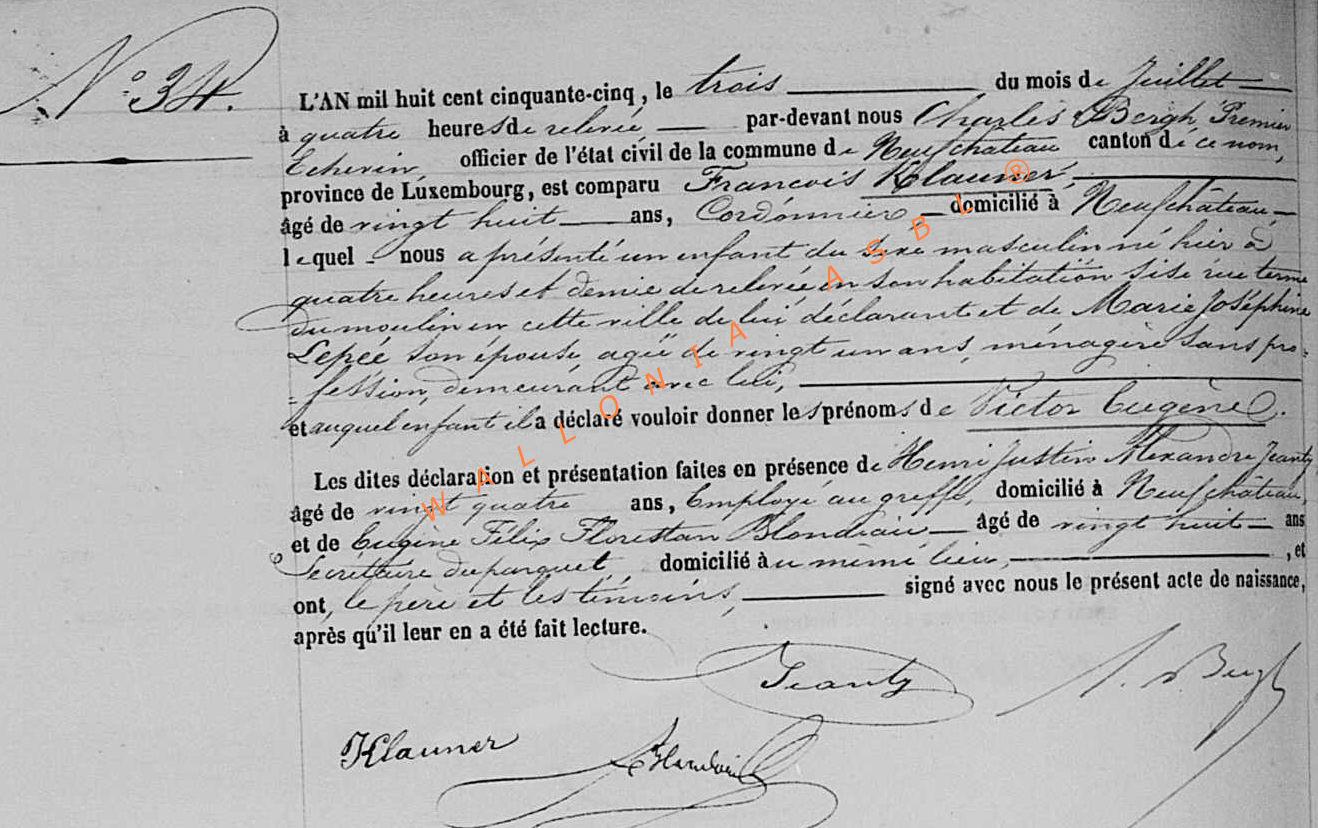 N° 34.
L'AN mil huit cent cinquante-cinq, le trois du mois de Juillet
à quatre heures de relevée, par-devant nous Charles Bergh Premier
Echevin, officier de l'état civil de la commune de Neufchâteau canton de ce nom,
province de Luxembourg, est comparu François Klauner,
âgé de vingt huit ans, Cordonnier, domicilié à Neufchâteau
lequel nous a présenté un enfant du sexe masculin né hier à
quatre heures et demie de relevée en son habitation sise rue terme
du moulin en cette ville de lui déclarant et de Marie Joséphine
Lepée son épouse, agée de vingt un ans, ménagère sans pro-
fession, demeurant avec lui,
et auquel enfant il a déclaré vouloir donner les prénoms de Victor Eugène.
Les dites déclaration et présentation faites en présence de Henri Justin Alexandre Jeanty
âgé de vingt quatre ans, Employé au greffe, domicilié à Neufchâteau,
et de Eugène Félix Florestan Blondiau âgé de vingt huit ans
Secrétaire du parquet domicilié au même lieu, , et
ont, le père et les témoins, signé avec nous le présent acte de naissance,
après qu'il leur en a été fait lecture.
Jeanty
Klauner
WALLONIA ASBL ®